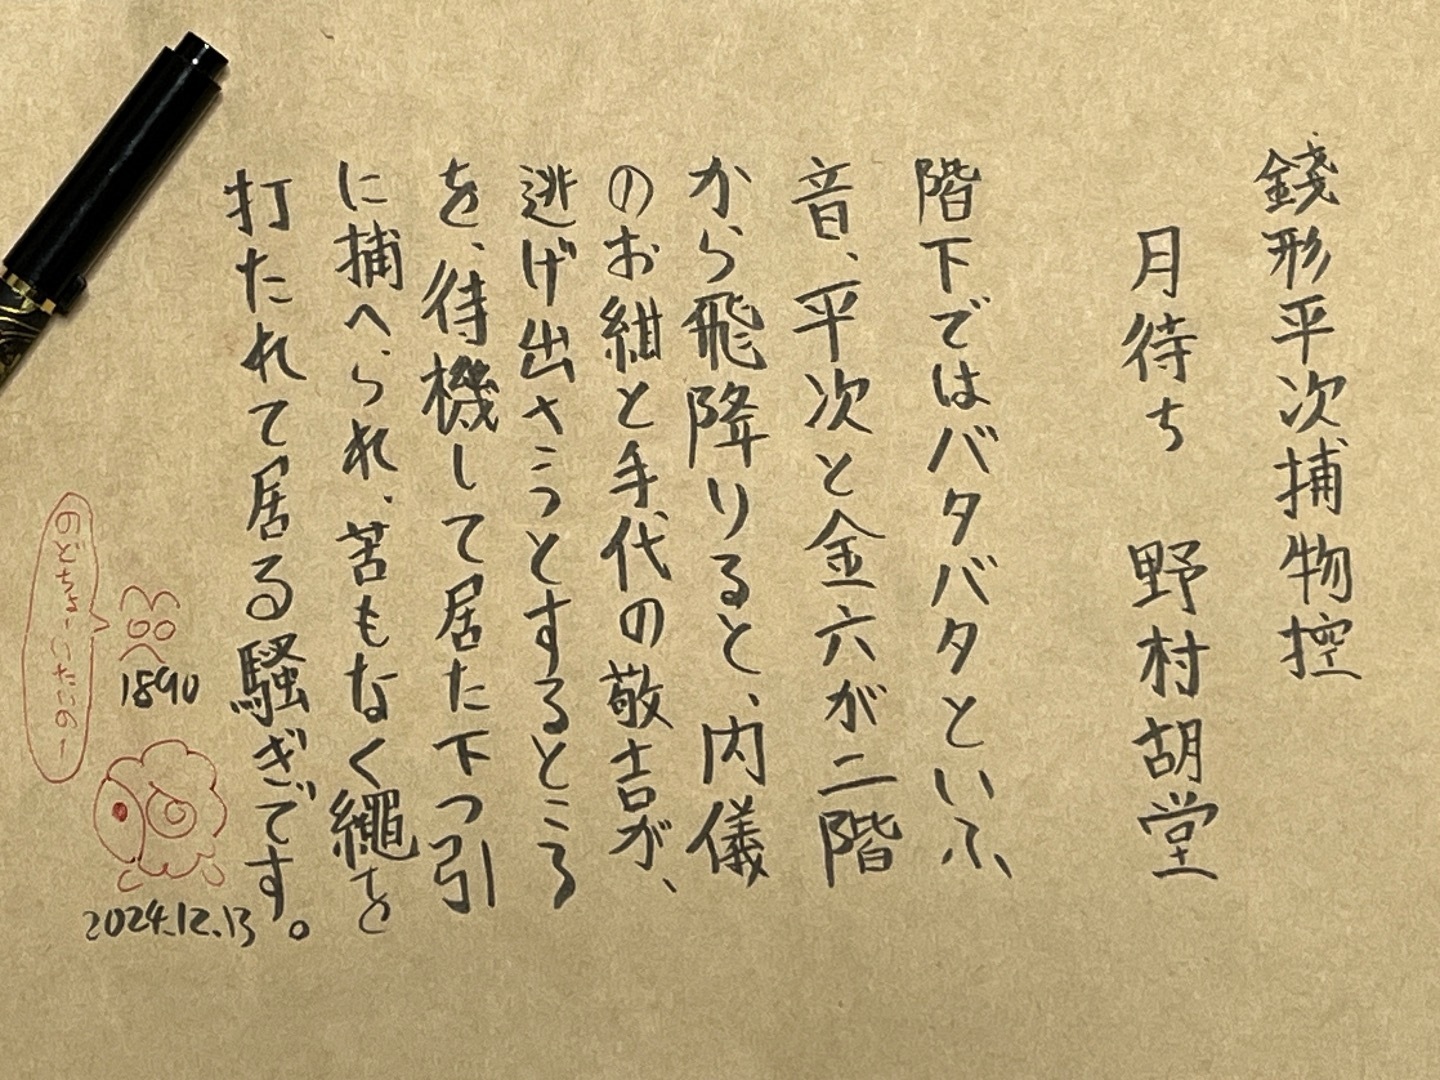 銭形平次捕物控
月待ち 野村胡堂
階下ではバタバタといふ、
音、平次と金六が二階
から飛降りると、内儀
のお紺と手代の敬吉が、
逃げ出さうとするところ
を、待機して居た下つ引
に捕へられ、苦もなく繩を
打たれて居る騒ぎです。
1890
2024.12.13